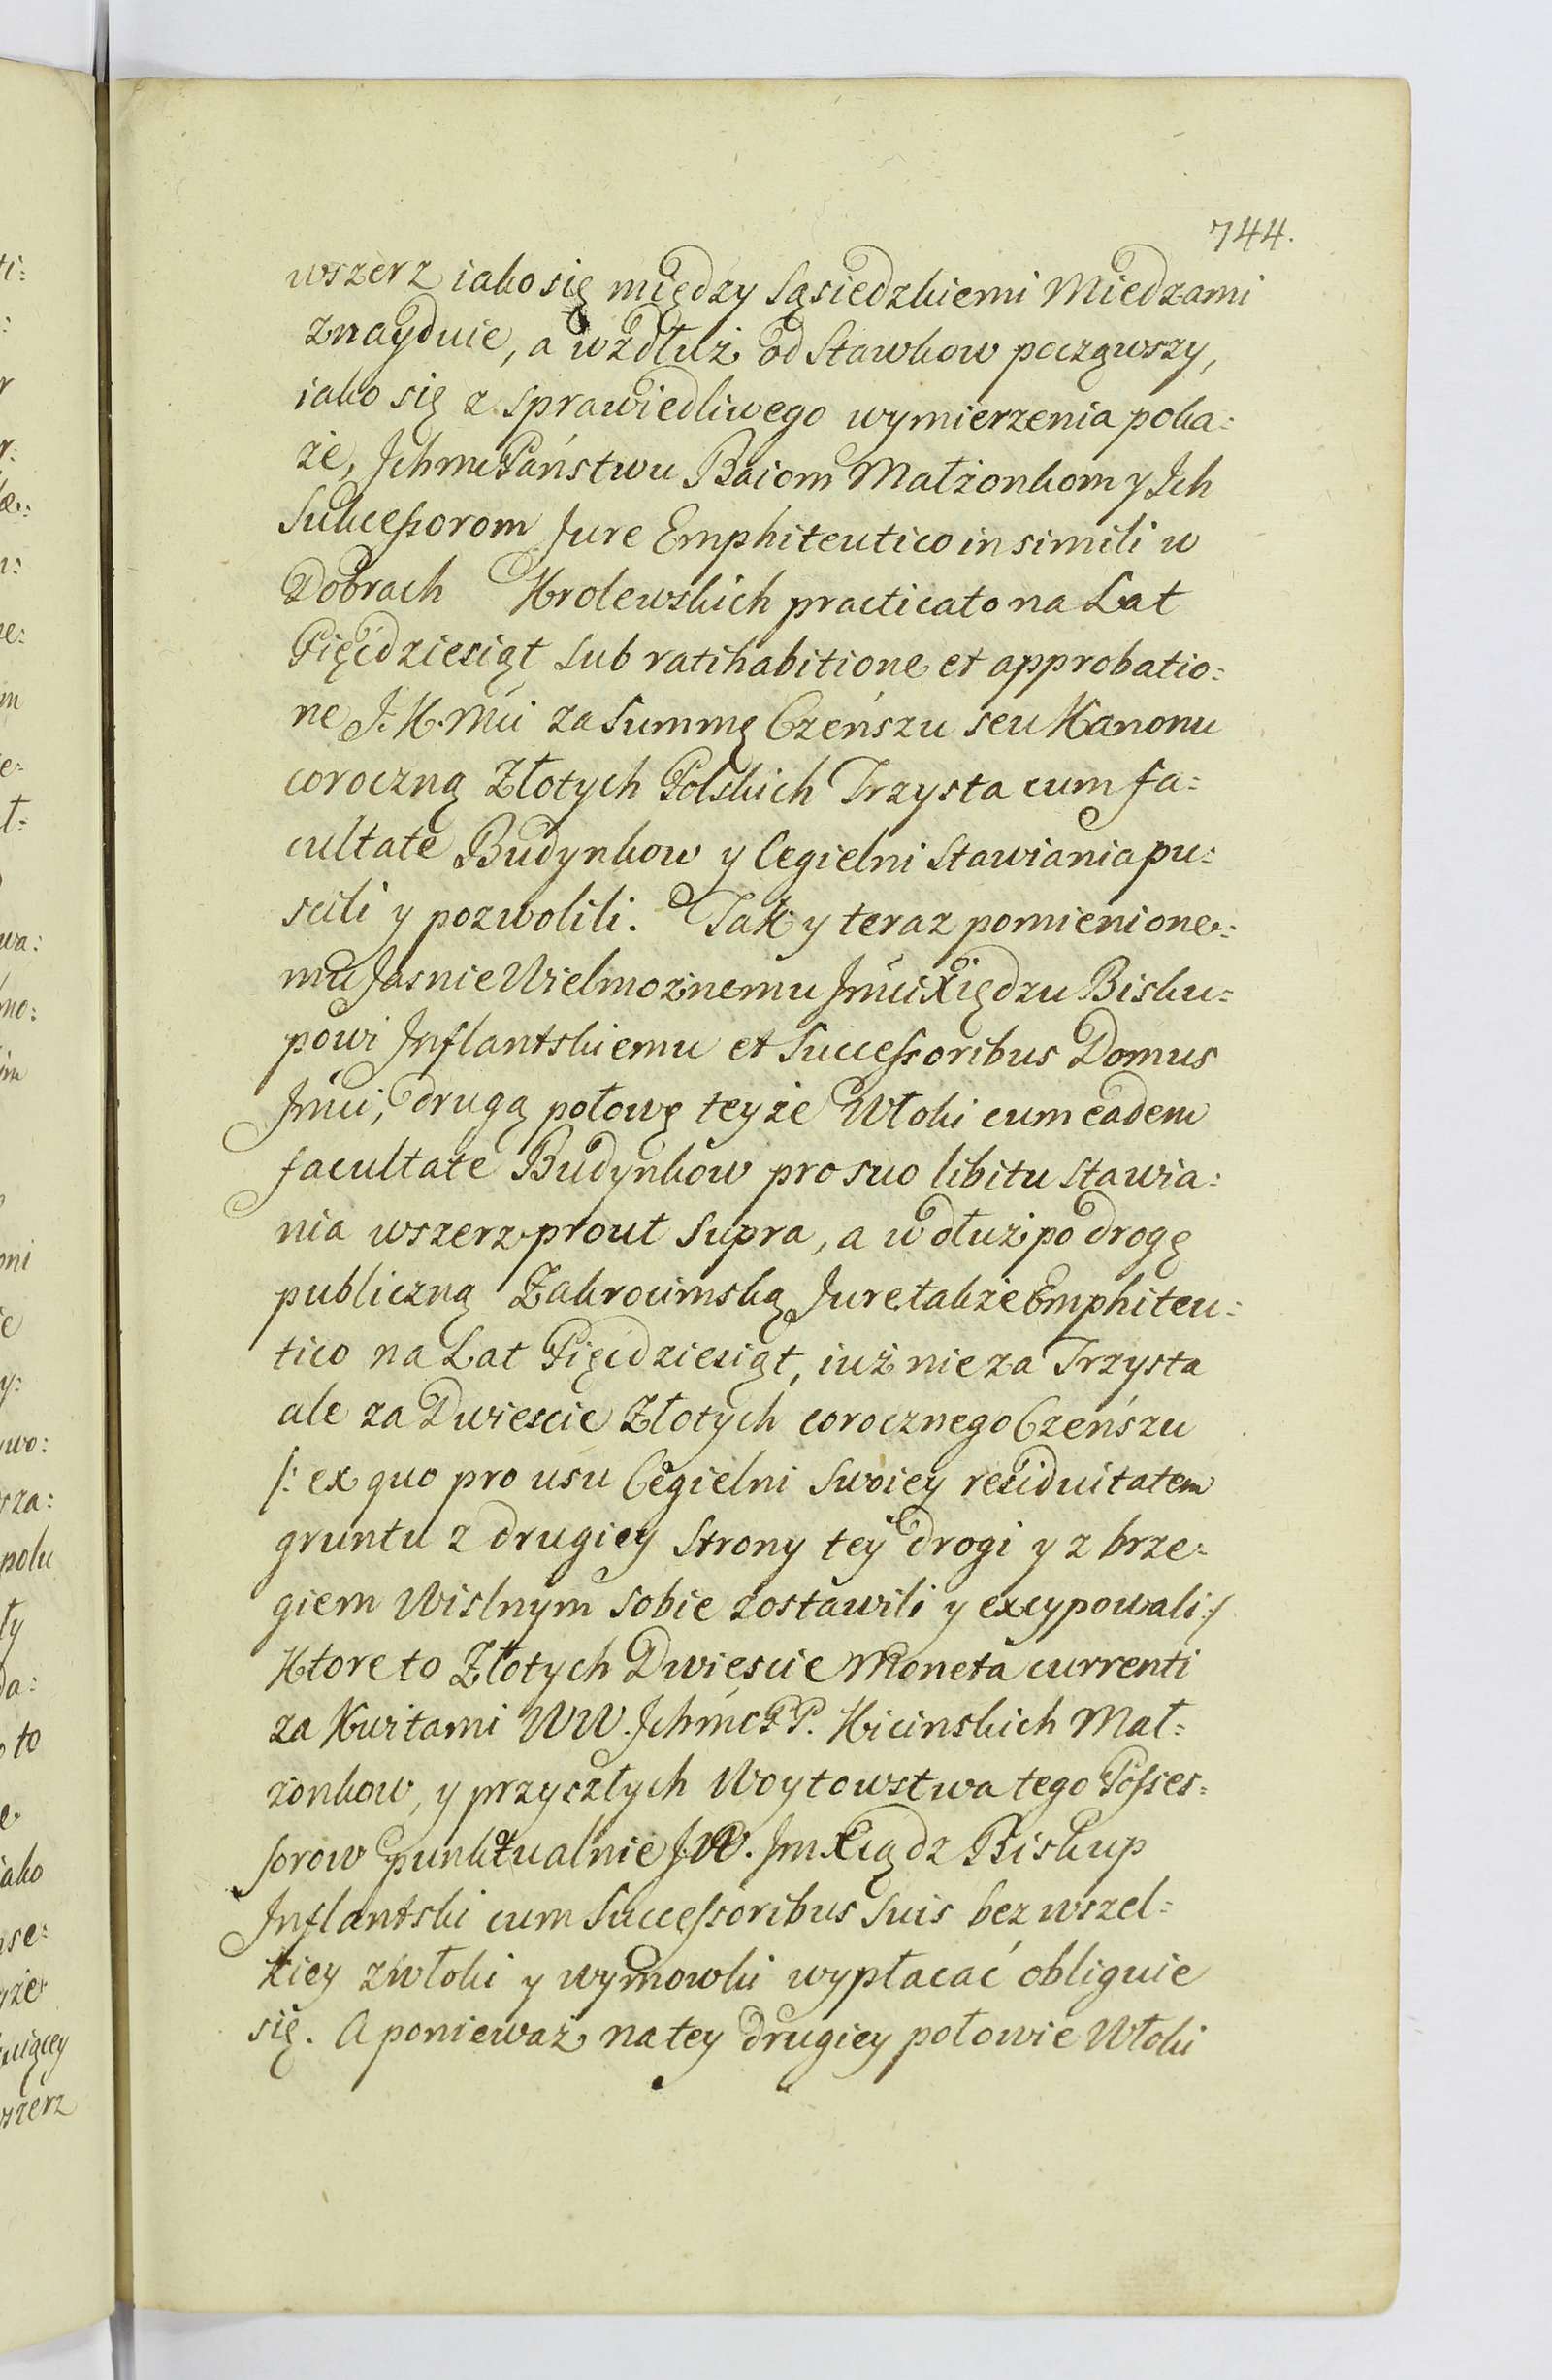 744.
wszerz iako się między Sąsiedzkiemi Miedzami
znayduie, a wzdłuż od Stawkow począwszy,
iako się z sprawiedliwego wymierzenia poka:
że, Jchmć Państwu Baiom Małżonkom y Jch
Sukcessorom Jure Emphiteutico in simili w
Dobrach Krolewskich practicato na Lat
Pięćdziesiąt sub ratihabitione et approbatio:
ne J. K. Mći za Summę Czeńszu seu Kanonu
coroczną Złotych Polskich Trzysta cum fa:
cultate Budynkow y Cegielni Stawiania pu:
scili y pozwolili. Tak y teraz pomienione:
mu Jasnie Wielmożnemu Jmći Xiędzu Bisku:
powi Jnflantskiemu et Successoribus Domus
Jmći, drugą połowę teyże Włoki cum eadem
facultate Budynkow pro suo libitu Stawia:
nia wszerz prout Supra, a wdłuż po drogę
publiczną Zakrocimską Jure także Emphiteu:
tico na Lat Pięćdziesiąt, iuż nie za Trzysta
ale za Dwiescie Złotych corocznego Czeńszu
/: ex quo pro usu Cegielni Swoiey residuitatem
gruntu z drugiey Strony tey drogi y z brze:
giem Wislnym Sobie zostawili y excypowali :/
Ktore to Złotych Dwiescie Moneta currenti
za Kwitami WW. Jchmć PP. Kicinskich Mał:
żonkow, y przyszłych Woytowstwa tego Posses:
sorow punktualnie J. W. Jm Xiądz Biskup
Jnflantski cum Successoribus Suis bez wszel:
kiey zwłoki y wymowki wypłacać obliguie
się. A ponieważ na tey drugiey połowie Włoki